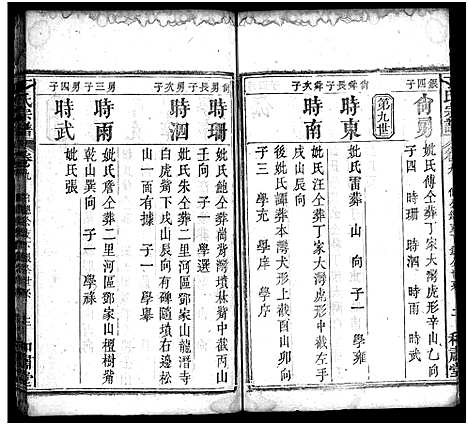 銀四子
妣氏傅仝葬丁家大灣虎形辛山乙向
子四 時珊 時泗 時雨 時武
第九世
舜長子
時東
妣氏雷葬 山 向 子一 學雍
舜次子
時南
妣氏汪仝葬丁家大灣虎形
戌山辰向
後妣氏譚葬本灣犬形上截酉山卯向
子三 學充 學庠 學序
勇長子
時珊
妣氏鮑仝葬崗背灣墳林嘴中截丙山
壬向 子一 學選
勇次子
時泗
妣氏朱仝葬二里河區鄧家山龍潛寺
白虎嘴下戌山辰向有碑隨墳右邊松
山一面有據 子一 學舉
勇三子
時雨
妣氏詹仝葬二里河區鄧家山檀樹嘴
乾山巽向 子一 學祿
勇四子
時武
妣氏張